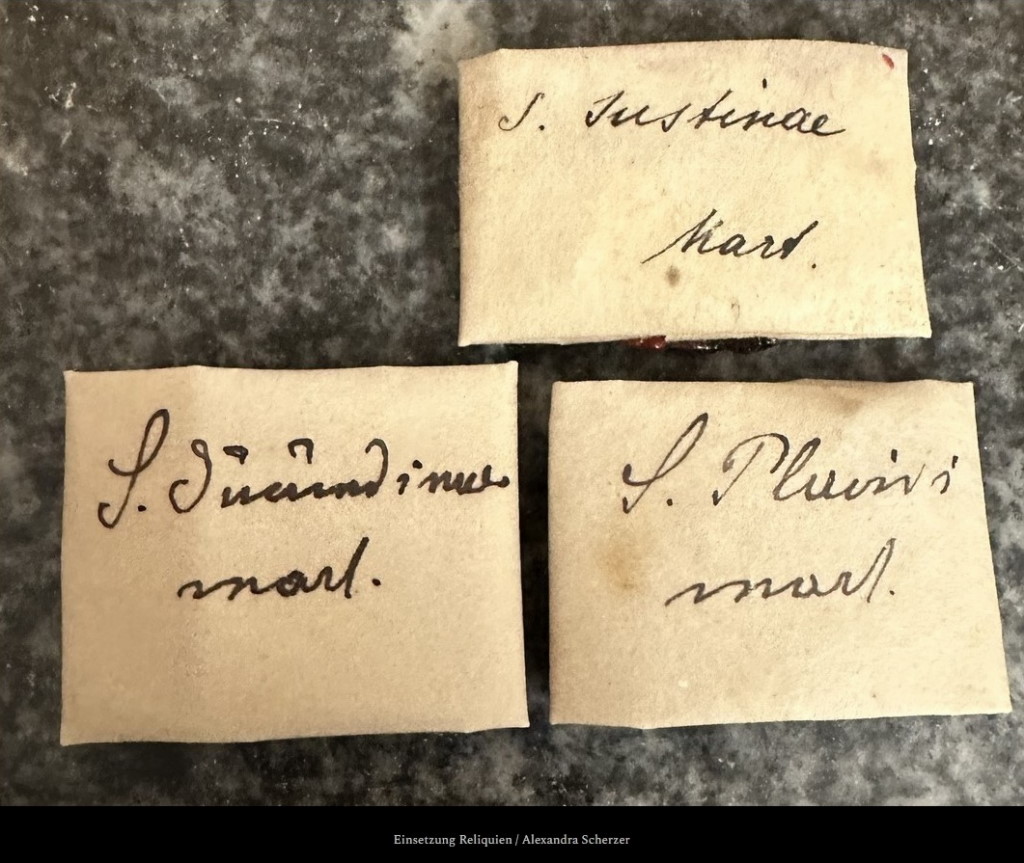 S. Justinae
Mart.
S. Jucundinae
mart.
S. Placidi
mart.
Einsetzung Reliquien / Alexandra Scherzer